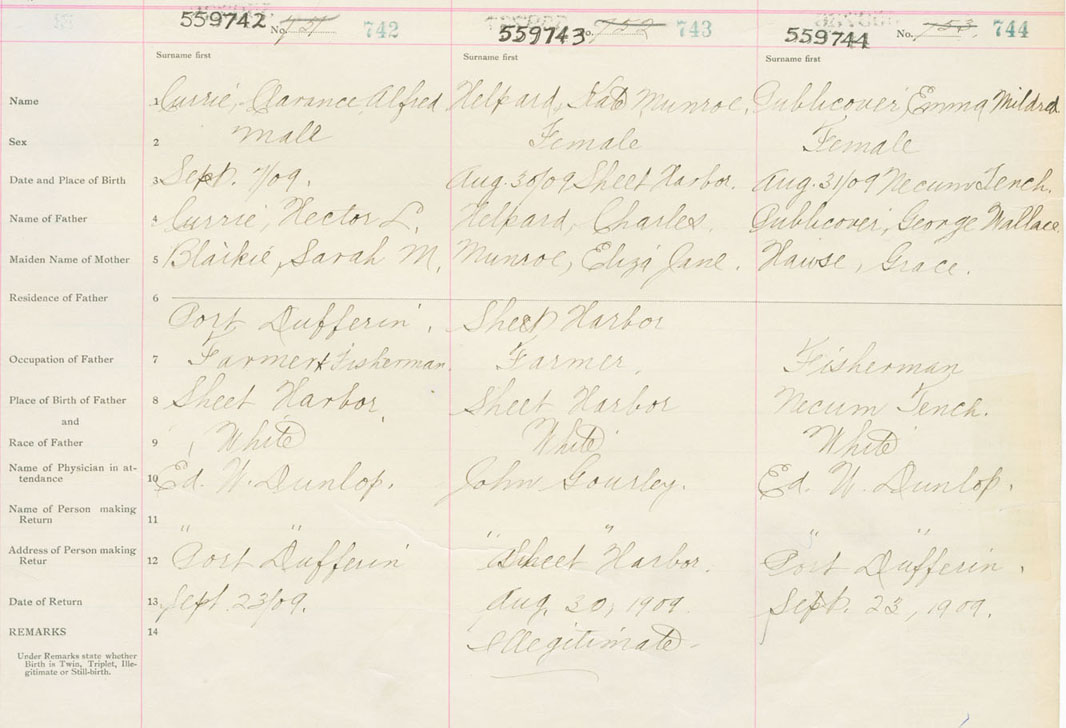 559742 No. 751 742 559743 No. 752 743 559744 No. 753. 744
Surname first Surname first Surname first
Name 1 Currie, Clarance Alfred Helpard, Kate Munroe, Publicover, Emma Mildred
Sex 2 Male Female Female
Date and Place of Birth 3 Sept. 7/09. Aug. 30/09 Sheet Harbor. Aug. 31/09 Necum Tench.
Name of Father 4 Currie, Hector L. Helpard, Charles. Publicover, George Wallace
Maiden Name of Mother 5 Blaikie, Sarah M. Munroe, Eliza Jane. Hawse, Grace.
Residence of Father 6
Port Dufferin. Sheet Harbor
Occupation of Father 7 Farmer & Fisherman. Farmer. Fisherman
Place of Birth of Father 8 Sheet Harbor, Sheet Harbor Necum Tench.
and
Race of Father 9 White White White
Name of Physician in at-
tendance 10 Ed. W. Dunlop. John Gourley. Ed. W. Dunlop.
Name of Person making
Return 11 " " " " " "
Address of Person making
Retur 12 Port Dufferin Sheet Harbor. Port Dufferin.
Date of Return 13 Sept 23/09. Aug. 30, 1909. Sept. 23, 1909.
REMARKS 14 Illegitimate.
Under Remarks state whether
Birth is Twin, Triplet, Ille-
gitimate or Still-birth.